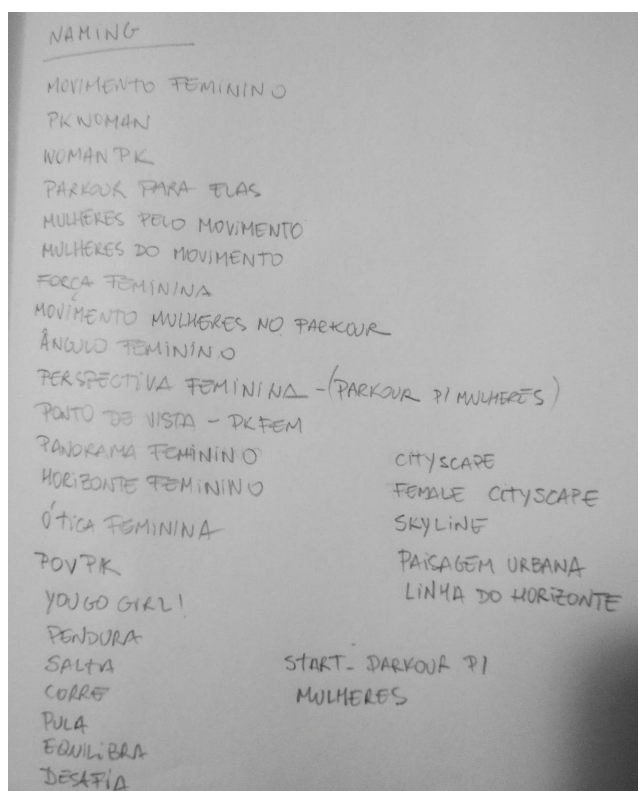 NAMING
MOVIMENTO FEMININO
PKWOMAN
WOMAN PK
PARKOUR PARA ELAS
MULHERES PELO MOVIMENTO
MULHERES DO MOVIMENTO
FORÇA FEMININA
MOVIMENTO MULHERES NO PARKOUR
ÂNGULO FEMININO
PERSPECTIVA FEMININA - (PARKOUR P/ MULHERES)
PONTO DE VISTA - PKFEM
PANORAMA FEMININO
HORIZONTE FEMININO
ÓTICA FEMININA
POVPK
YOU GO GIRL!
PENDURA
SALTA
CORRE
PULA
EQUILIBRA
DESAFIA
CITYSCAPE
FEMALE CITYSCAPE
SKYLINE
PAISAGEM URBANA
LINHA DO HORIZONTE
START - PARKOUR P/
MULHERES